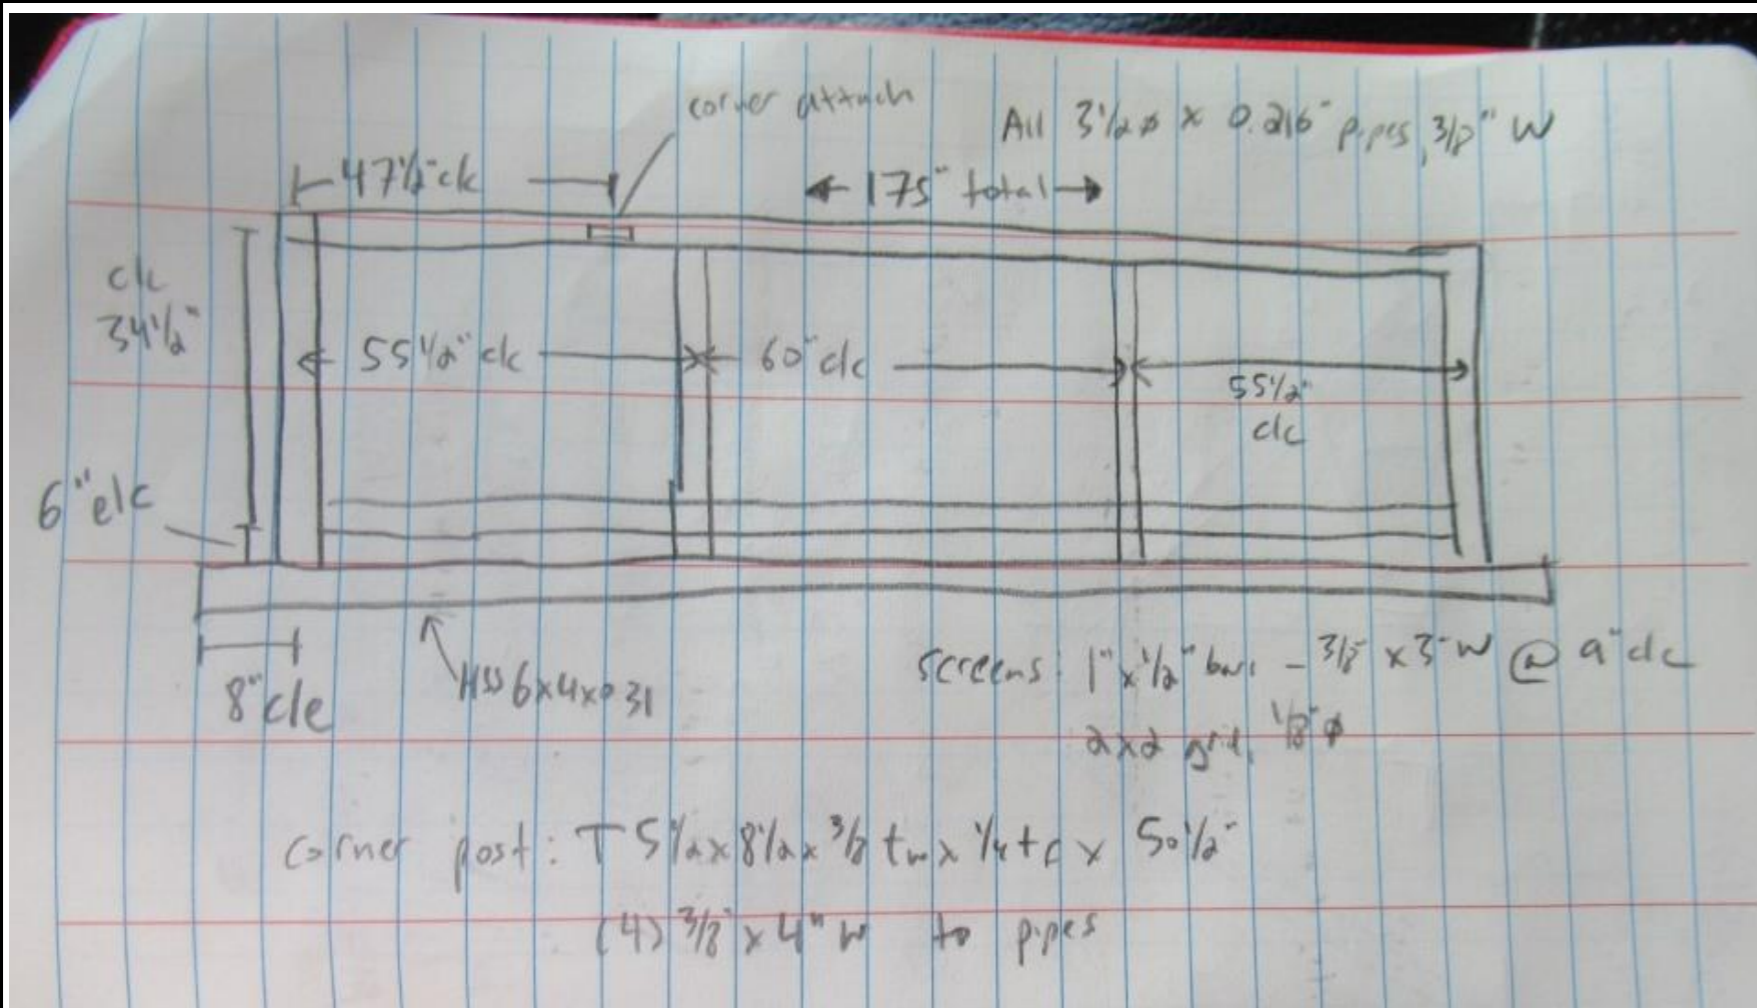 corner attach
All 3 1/2 ø x 0.216" pipes, 3/8" W
47 1/2" c/c
175" total
c/c
34 1/2"
55 1/2" c/c
60" c/c
55 1/2"
c/c
6" e/c
8" c/e
HSS 6x4x0.31
screens: 1" x 1/2" bars - 3/8" x 3" W @ 9" c/c
2x2 grid, 1/8" ø
corner post: T 5 1/2 x 8 1/2 x 3/8 tw x 1/4 tf x 50 1/2"
(4) 3/8" x 4" W to pipes